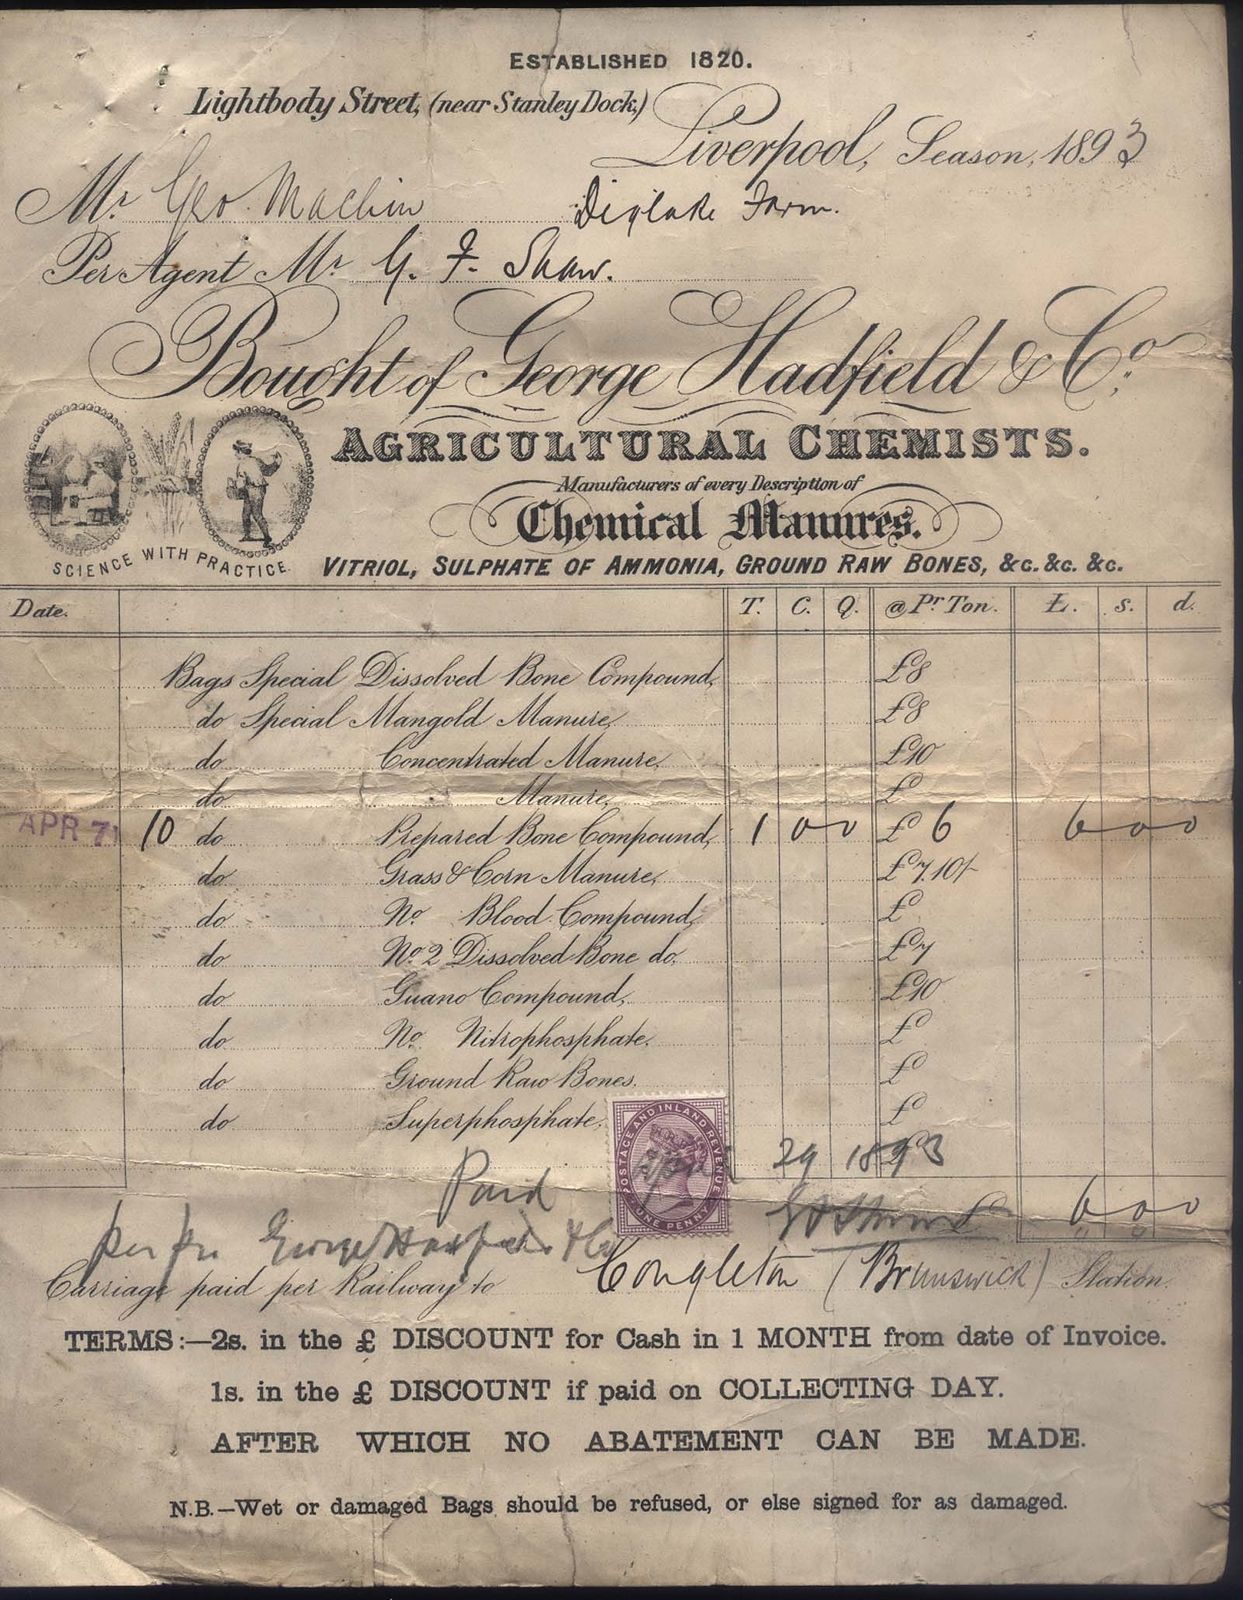 ESTABLISHED 1820.
Lightbody Street, (near Stanley Dock,)
Liverpool, Season, 1893
Mr. Geo. Machin Diglake Farm.
Per Agent Mr. G. F. Shaw.
Bought of George Hadfield & Co.
AGRICULTURAL CHEMISTS.
Manufacturers of every Description of
Chemical Manures.
SCIENCE WITH PRACTICE.
VITRIOL, SULPHATE OF AMMONIA, GROUND RAW BONES, &c. &c. &c.
Date. T. C. Q. @ Pr Ton. £. s. d.
Bags Special Dissolved Bone Compound, £8
do Special Mangold Manure, £8
do Concentrated Manure, £10
do Manure, £
APR 7 10 do Prepared Bone Compound, 1 0 0 £ 6 6 0 0
do Grass & Corn Manure, £7.10/-
do No. Blood Compound, £
do No. 2 Dissolved Bone do. £7
do Guano Compound, £10
do No. Nitrophosphate. £
do Ground Raw Bones. £
do Superphosphate. £
POSTAGE AND INLAND REVENUE
ONE PENNY
Paid April 29 1893
per pro George Hadfield & Co 6 0 0
Carriage paid per Railway to Congleton (Brunswick) Station.
TERMS:—2s. in the £ DISCOUNT for Cash in 1 MONTH from date of Invoice.
1s. in the £ DISCOUNT if paid on COLLECTING DAY.
AFTER WHICH NO ABATEMENT CAN BE MADE.
N.B.—Wet or damaged Bags should be refused, or else signed for as damaged.